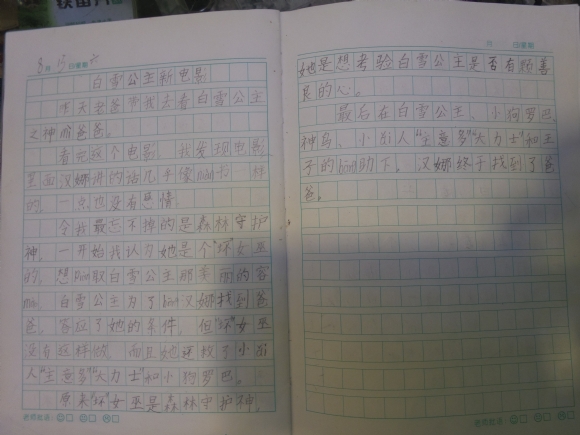 8月15日星期六
白雪公主新电影
昨天爸爸带我去看白雪公主
之神奇爸爸。
看完这个电影，我发现电影
里面汉娜讲的话几乎像
的，一点也没有感情。
令我最忘不掉的是森林守护
神。一开始我认为她是个“坏”女巫
的，想 取白雪公主那美丽的容
白雪公主为了 汉娜找到爸
爸，答应了她的条件，但“坏”女巫
没有这样做，而且她还救了小矮
人“主意多”“大力士”和小狗罗巴。
原来“坏”女巫是森林守护神，
老师批示：
月 日星期
她是想考验白雪公主是否有颗善
良的心。
最后在白雪公主、小狗罗巴
神鸟、小矮人“主意多”“大力士”和王
子的 助下，汉娜终于找到了爸
爸。
老师批示：